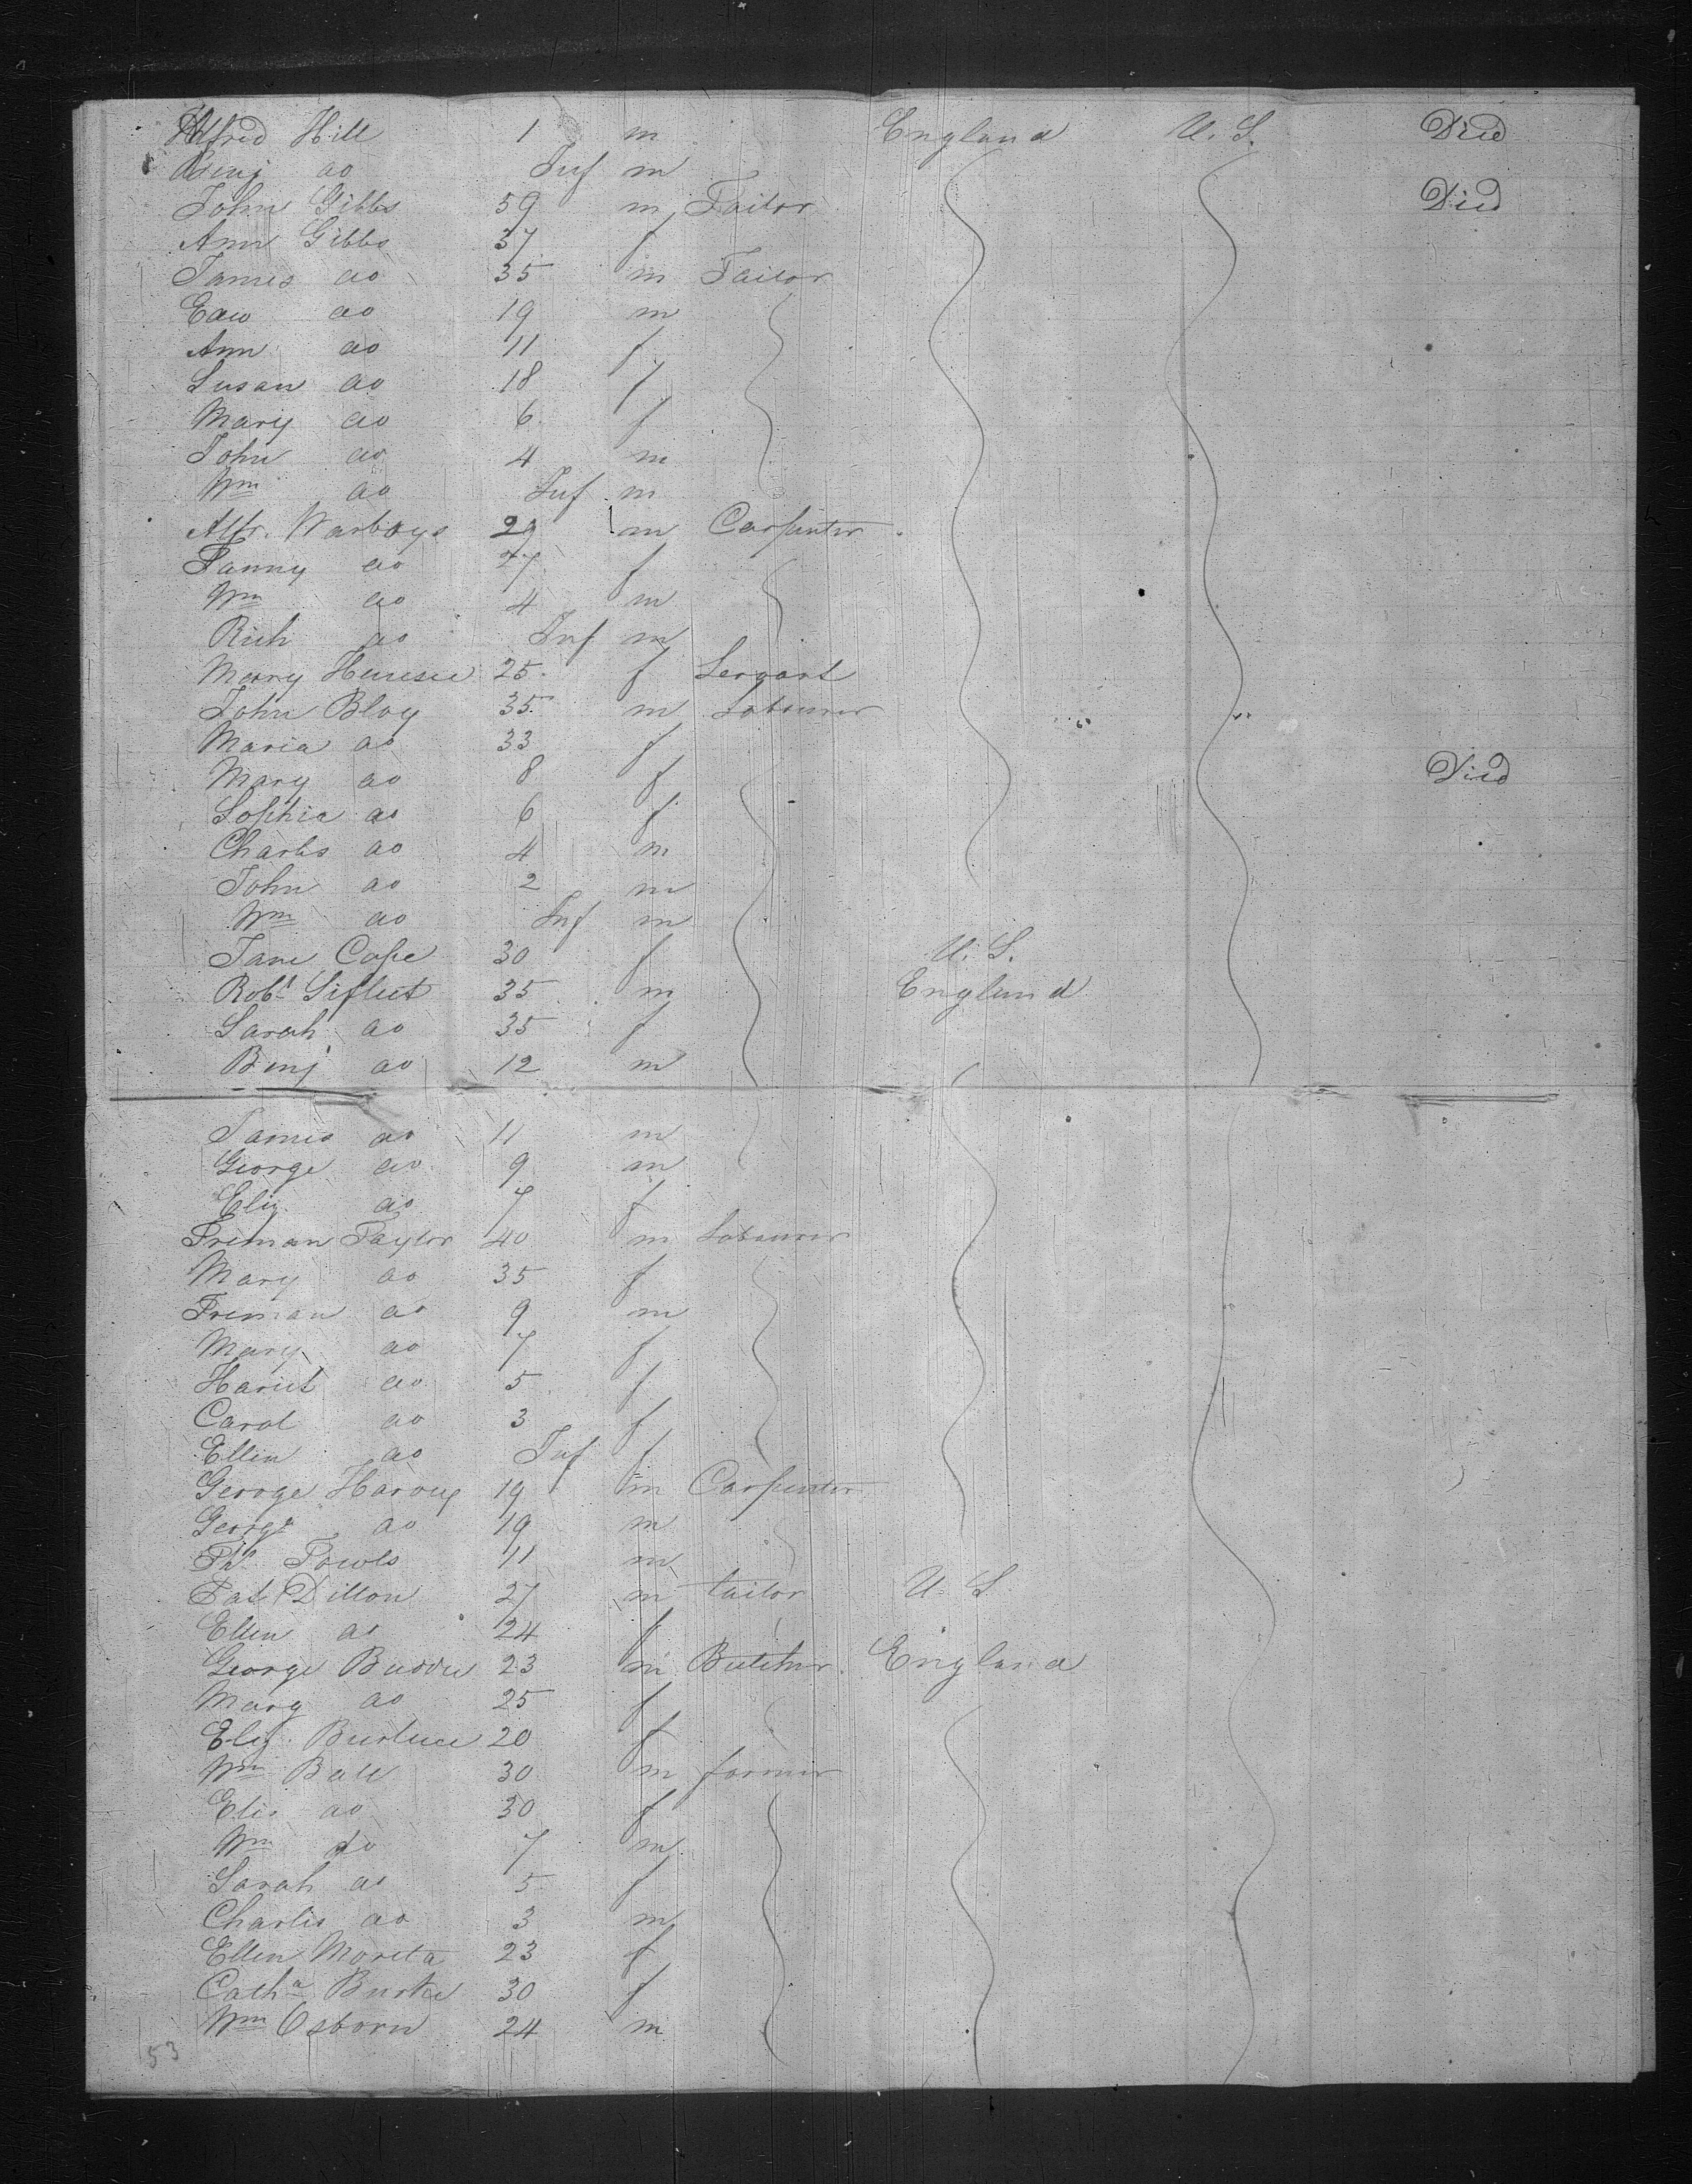 Alfred Hill 1 m England U. S. Died
Benj do Inf m
John Gibbs 59 m Tailor Died
Ann Gibbs 37 f
James do 35 m Tailor
Edw do 19 m
Ann do 11 f
Susan do 18 f
Mary do 6 f
John do 4 m
Wm do Inf m
Alfr. Warboys 29 m Carpenter
Fanny do 27 f
Wm do 4 m
Rich do Inf m
Mary 25 f Servant
John Bloy 35 m Labourer
Maria do 33 f
Mary do 8 f Died
Sophia do 6 f
Charles do 4 m
John do 2 m
Wm do Inf m
Jane Cope 30 f U. S.
Robt Siflect 35 m England
Sarah do 35 f
Benj do 12 m
James do 11 m
George do 9 m
Eliz do 7 f
Freman Taylor 40 m Labourer
Mary do 35 f
Freman do 9 m
Mary do 7 f
Hariet do 5 f
Carol do 3 f
Ellen do Inf f
George Harvey 19 m Carpenter
George do 19 m
Ths Powls 11 m
Pat Dillon 27 m tailor U. S
Ellen do 24 f
George 23 m Butcher England
Mary do 25 f
Eliz 20 f
Wm Ball 30 m farmer
Elis do 30 f
Wm do 7 m
Sarah do 5 f
Charles do 3 m
Ellen Moreta 23 f
Catha Burke 30 f
Wm Osborn 24 m
53